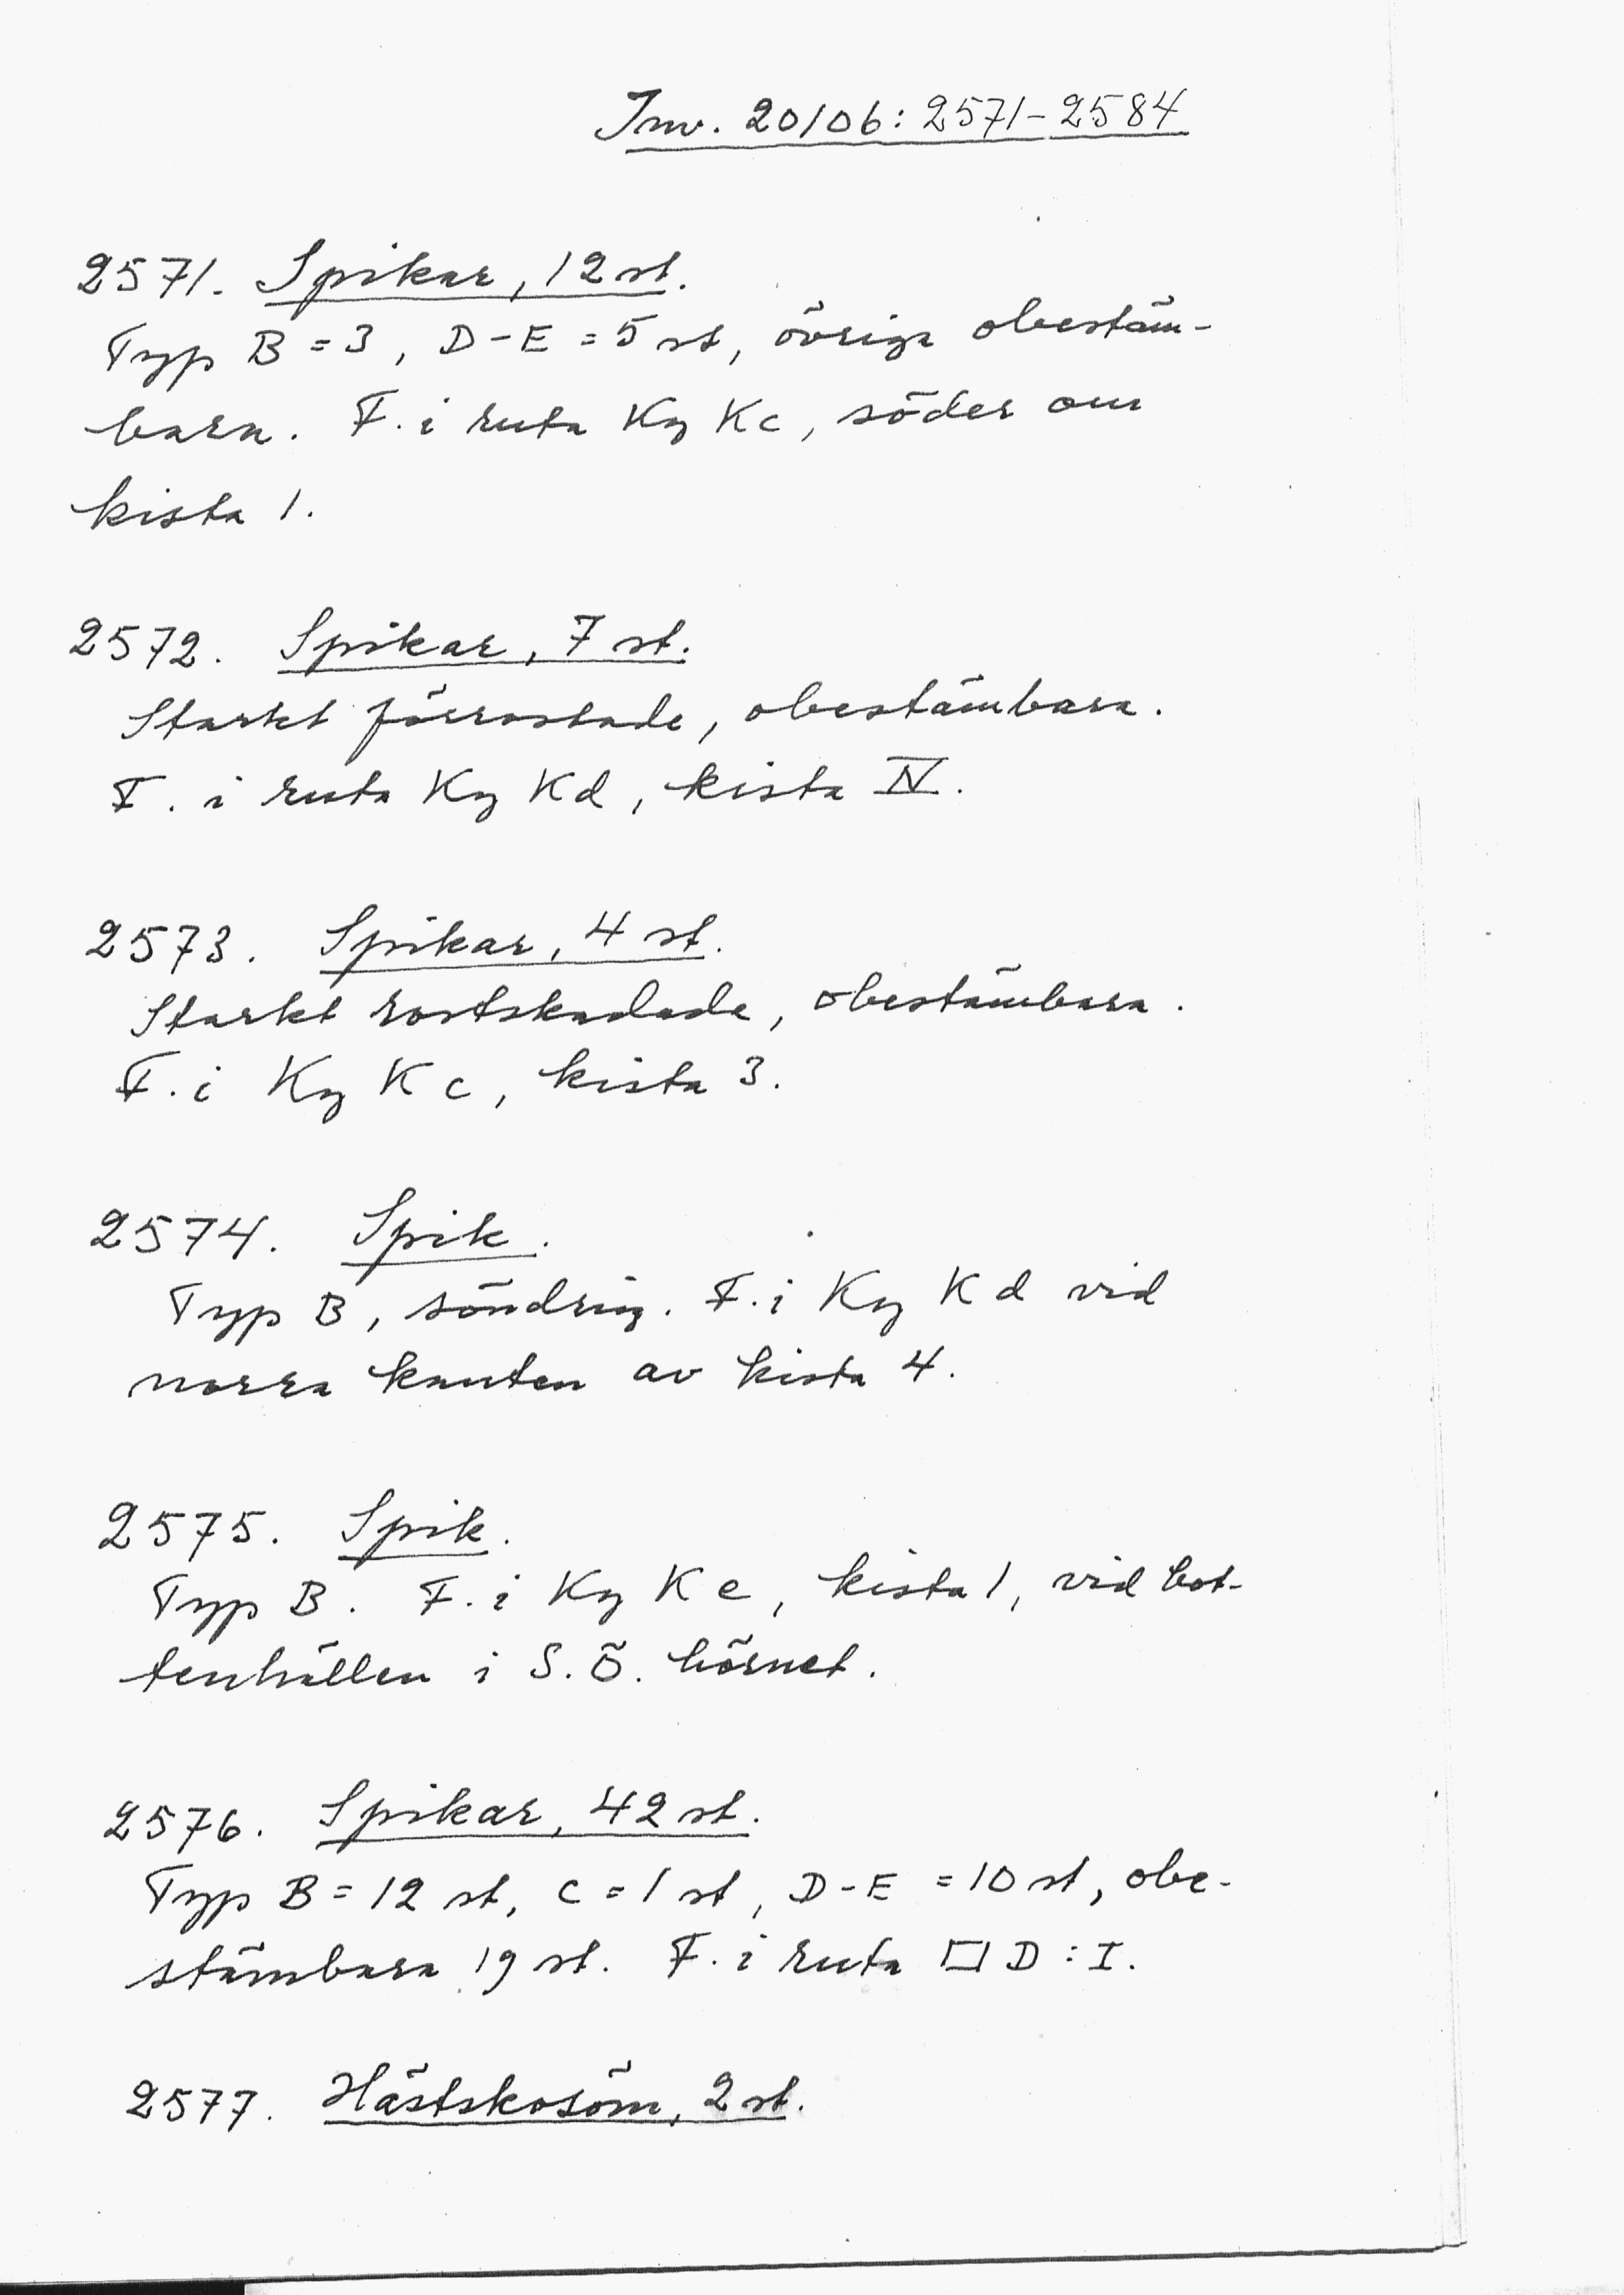 Inv. 20106: 2571-2584
2571. Spikar, 12 st.
Typ B = 3, D-E = 5 st, övriga obestäm-
bara. F. i ruta Ky Kc, söder om
kista 1.
2572. Spikar, 7 st.
Starkt förrostade, obestämbara.
F. i ruta Ky Kd, kista IV.
2573. Spikar, 4 st.
Starkt rostskadade, obestämbara.
F. i Ky Kc, kista 3.
2574. Spik.
Typ B, söndrig. F. i Ky Kd vid
norra kanten av kista 4.
2575. Spik.
Typ B. F. i Ky Kc, kista 1, vid bot-
tenhällen i S.Ö. hörnet.
2576. Spikar, 42 st.
Typ B = 12 st, C = 1 st, D-E = 10 st, obe-
stämbara 19 st. F. i ruta □ D : I.
2577. Hästskosöm, 2 st.